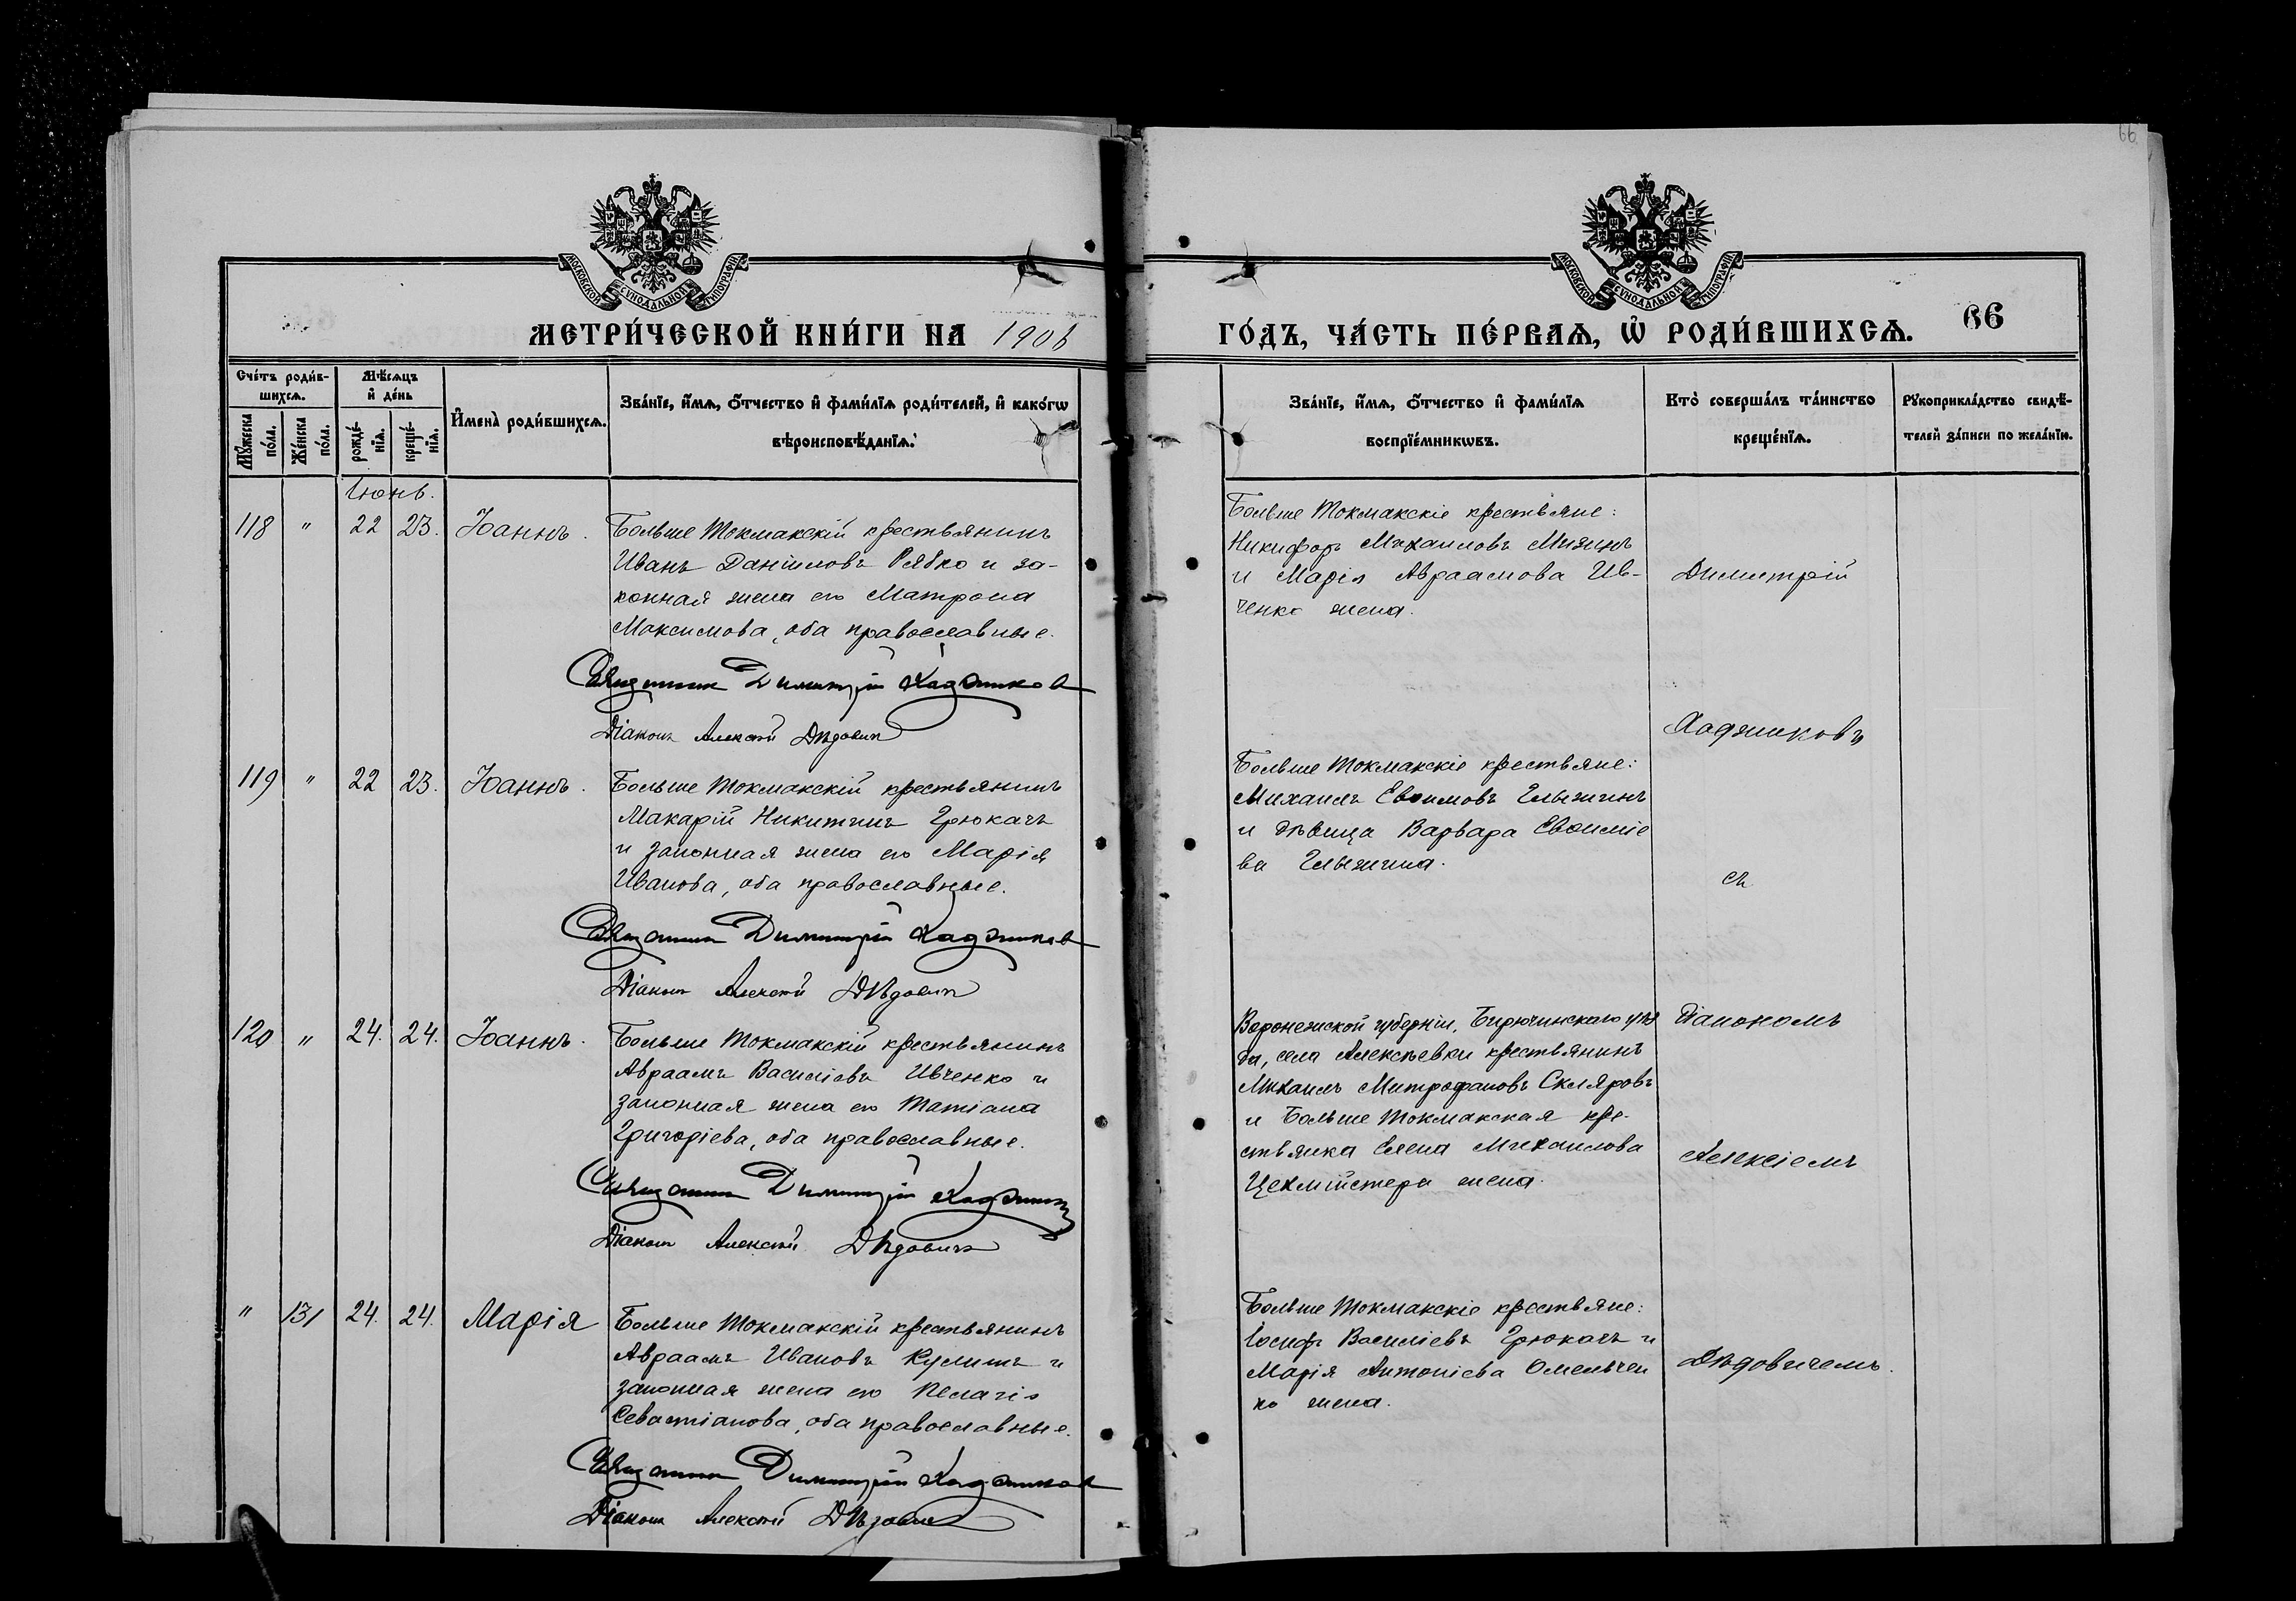 66
МОСКОВСКОЙ СѴНОДАЛЬНОЙ ТИПОГРАФІИ
МОСКОВСКОЙ СѴНОДАЛЬНОЙ ТИПОГРАФІИ
МЕТРИ́ЧЕСКОЙ КНИ́ГИ НА 1906
ГО́ДЪ, ЧА́СТЬ ПЕ́РВАѦ, Ѡ҆ РОДИ́ВШИХСѦ. 66
Сче́тъ роди́в-
шихсѧ.
Мѣ́сѧцъ
и҆ де́нь
Мꙋ́жеска
по́ла.
Же́нска
по́ла.
рожде́-
нїѧ.
креще́-
нїѧ.
И҆мена̀ роди́вшихсѧ.
Зва́нїе, и҆́мѧ, ѻ҆́тчество и҆ фами́лїѧ роди́телей, и҆ како́гѡ
вѣроисповѣ́данїѧ.
Зва́нїе, и҆́мѧ, ѻ҆́тчество и҆ фами́лїѧ
воспрїе́мникѡвъ.
Кто̀ соверша́лъ та́инство
креще́нїѧ.
Рꙋкоприкла́дство свидѣ́-
телей за́писи по жела́нїю.
Іюнь.
118 " 22 23. Іоаннъ.
Больше Токмакскій крестьянинъ
Иванъ Даніиловъ Рябко и за-
конная жена его Матрона
Максимова, оба православные.
Священник Димитрій Хаджинов
Діаконъ Алексѣй Дѣдович
Больше Токмакскіе крестьяне:
Никифоръ Михаиловъ Мизинъ
и Марія Авраамова Ив-
ченко жена.
Димитрій
Хаджиновъ
119 " 22 23. Іоаннъ.
Больше Токмакскій крестьянинъ
Макарій Никитинъ Грюкачъ
и законная жена его Марія
Иванова, оба православные.
Священник Димитрій Хаджинов
Діаконъ Алексѣй Дѣдович
Больше Токмакскіе крестьяне:
Михаилъ Евѳимовъ
и дѣвица Варвара Евѳиміе
ва
съ
120 " 24. 24. Іоаннъ.
Больше Токмакскій крестьянинъ
Авраамъ Василіевъ Ивченко и
законная жена его Татіана
Григоріева, оба православные.
Священник Димитрій Хаджинов
Діаконъ Алексѣй Дѣдовичъ
Воронежской губерніи, Бирючинскаго уѣз
да, села Алексѣевки крестьянинъ
Михаилъ Митрофановъ Скляровъ
и Больше Токмакская кре-
стьянка Елена Михаилова
Цехмійстера жена.
Діакономъ
Алексіемъ
" 131 24. 24. Марія
Больше Токмакскій крестьянинъ
Авраамъ Ивановъ Кулишъ и
законная жена его Пелагія
Севастіанова, оба православные.
Священник Димитрій Хаджинов
Діаконъ Алексѣй Дѣдович
Больше Токмакскіе крестьяне:
Іосифъ Василіевъ Грюкачъ и
Марія Антоніева Омельчен
ко жена.
Дѣдовичемъ.